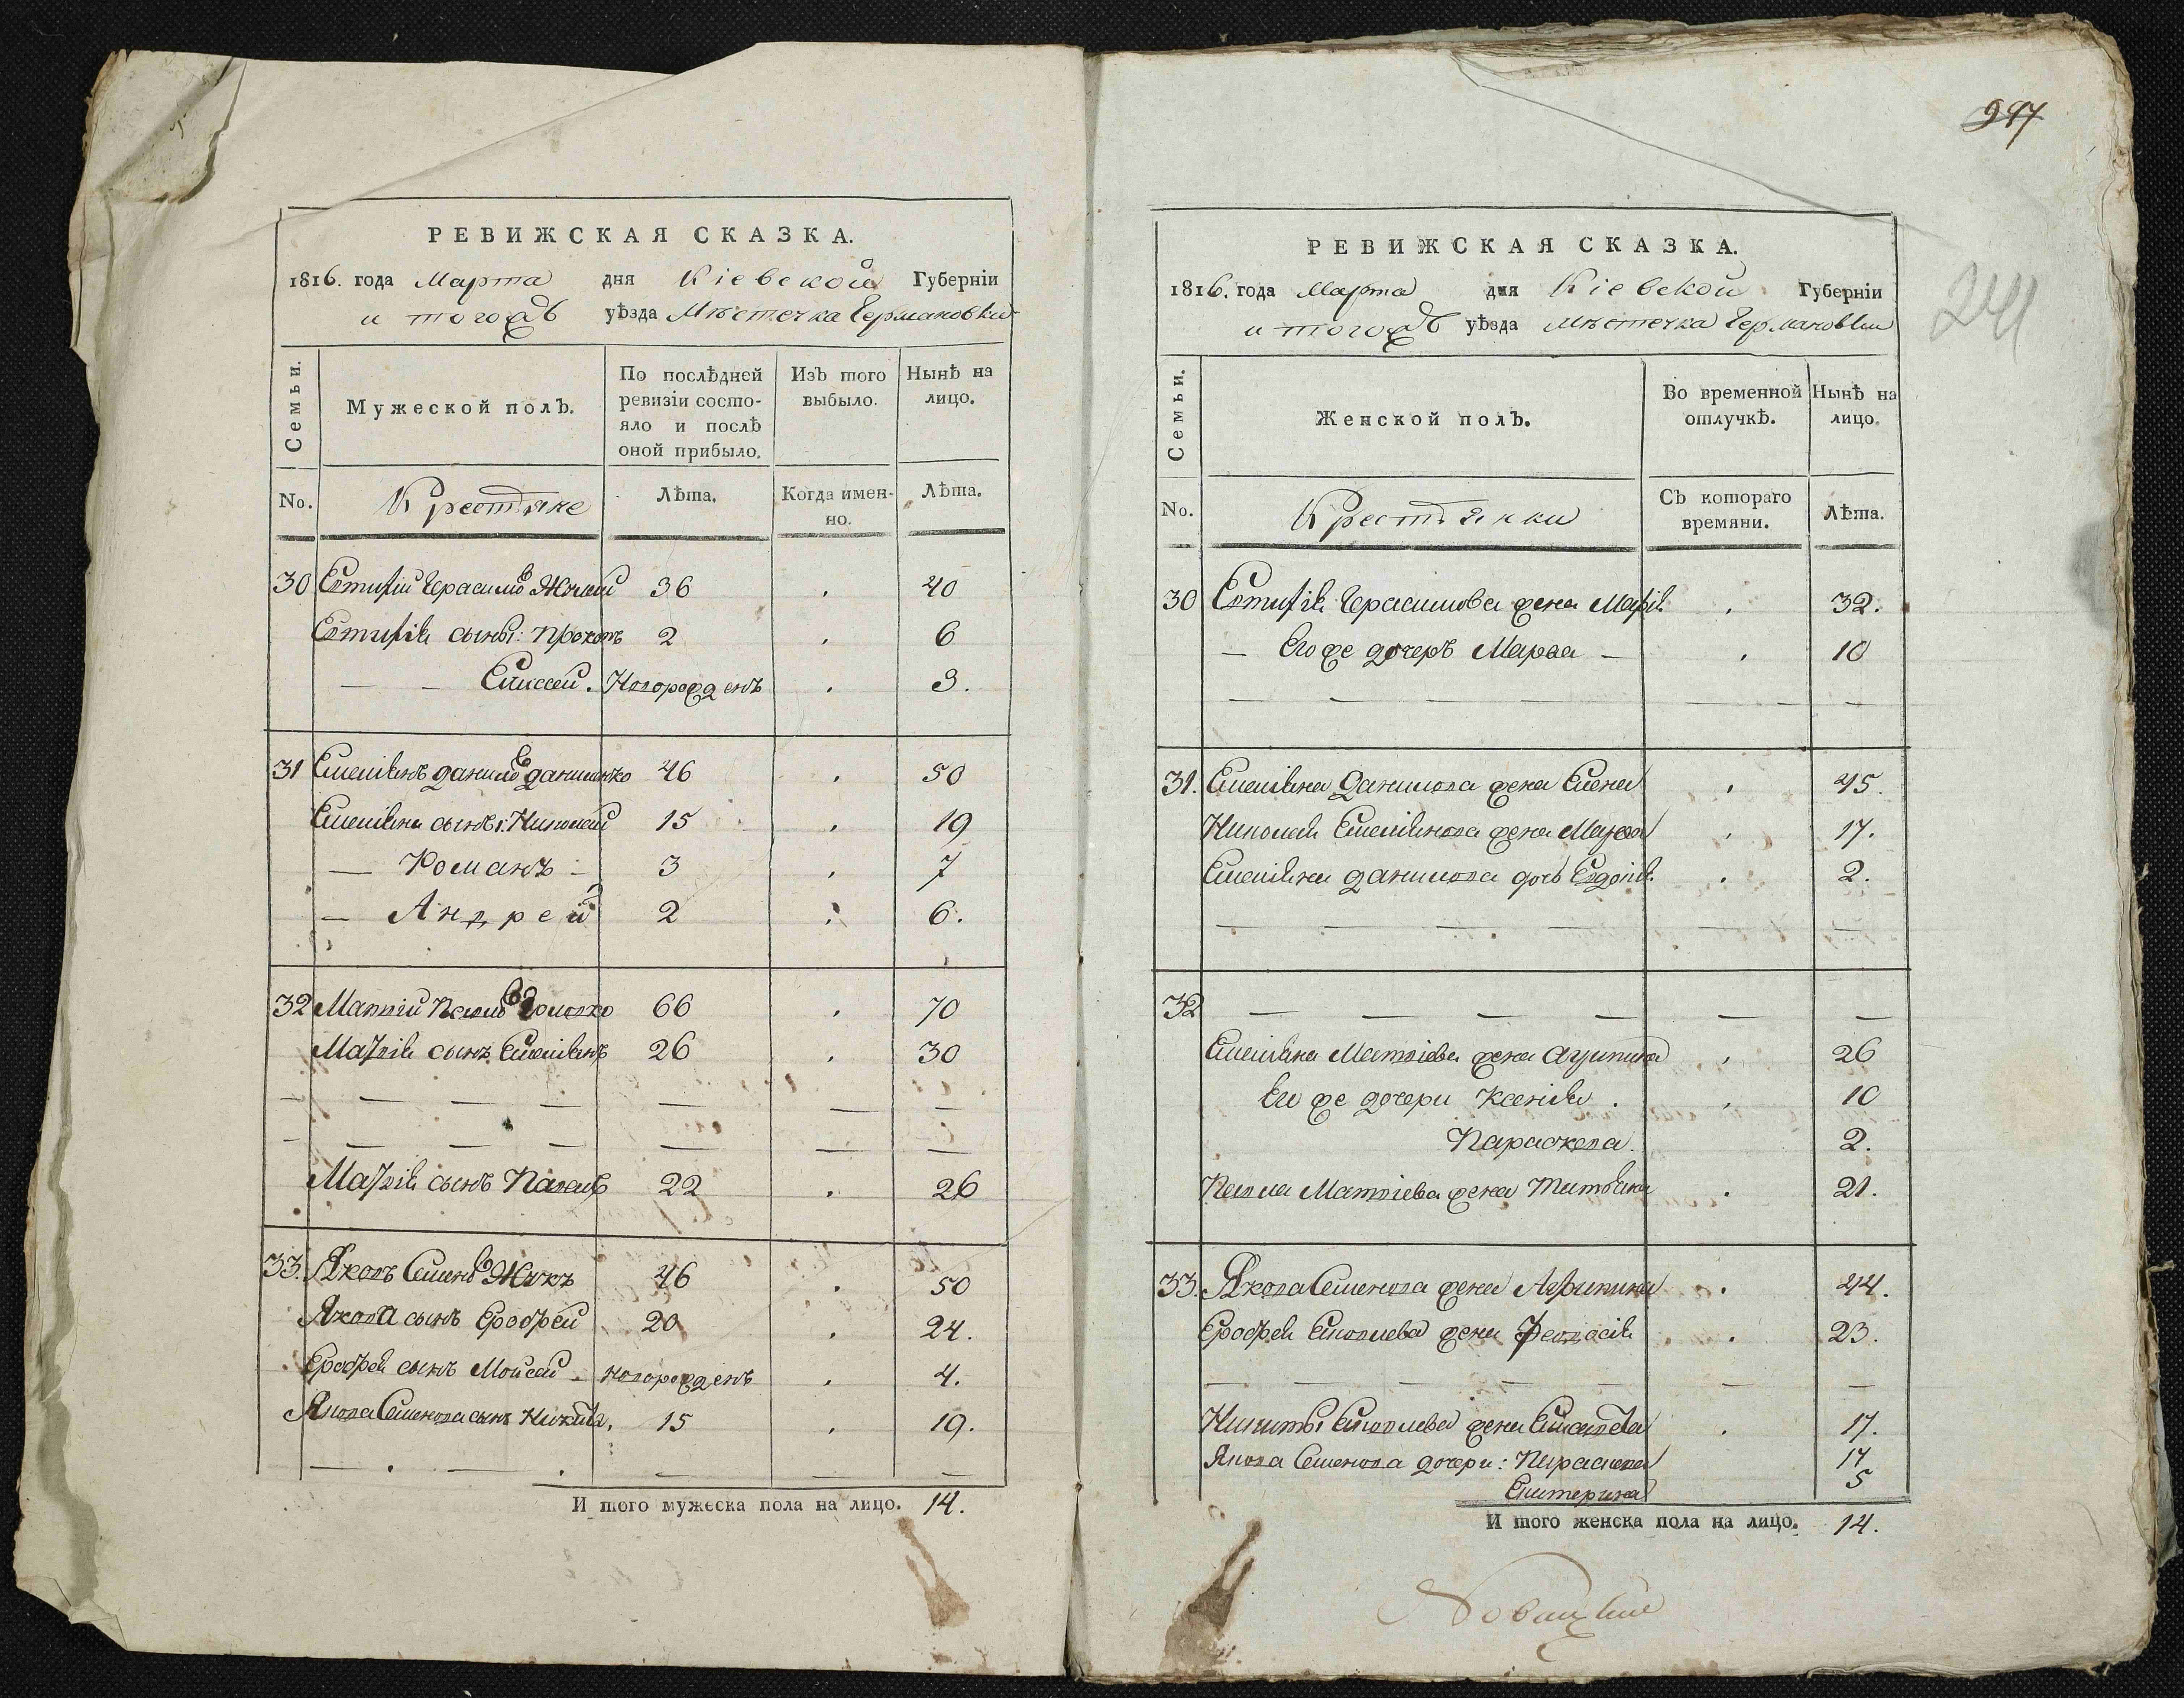 РЕВИЖСКАЯ СКАЗКА.
1816. года Марта дня Кіевской Губерніи
и тогожъ уѣзда Мѣстечка Германовки
Семьи.
Мужеской полъ.
По послѣдней ревизіи состояло и послѣ оной прибыло.
Изъ того выбыло.
Нынѣ на лицо.
No.
Крестьяне
Лѣта.
Когда именно.
Лѣта.
30 Евтифій Герасимовъ 36 40
Евтифія сыны: Прокопъ 2 6
— — Елисей. Новорожденъ 3.
31 Емеліянъ Даниловъ Даниленко 46 50
Емеліяна сыны: Николай 15 19
— Романъ — 3 7
— Андрей 2 6.
32 Матвій Павловъ 66 70
Матвія сынъ Емеліянъ 26 30
Матвія сынъ Павелъ 22 26
33. Яковъ Семеновъ Жукъ 46 50
Якова сынъ Ерофей 20 24.
Ерофея сынъ Мойсей — новорожденъ 4.
Якова Семенова сынъ Никита, 15 19.
И того мужеска пола на лицо. 14.
997
241
РЕВИЖСКАЯ СКАЗКА.
1816. года Марта дня Кіевской Губерніи
и тогожъ уѣзда Мѣстечка Германовки
Семьи.
Женской полъ.
Во временной отлучкѣ.
Нынѣ на лицо.
No.
Крестьянки
Съ котораго времяни.
Лѣта.
30 Евтифія Герасимова жена Марія 32.
— Его же дочерь Марфа — 10
31. Емеліяна Данилова жена Елена 45.
Николая Емеліянова жена Марфа 17.
Емеліяна Данилова дочь Евдокія 2.
32
Емеліяна Матвіева жена Агрипина 26
Его же дочери Ксенія. 10
Параскева. 2.
Павла Матвіева жена Татьяна 21.
33. Якова Семенова жена Агрипина 44.
Ерофея Яковлева жена Феодосія 23.
Никиты Яковлева жена Елисавета 17.
Якова Семенова дочери: Параскева 14
Екатерина 5
И того женска пола на лицо. 14.